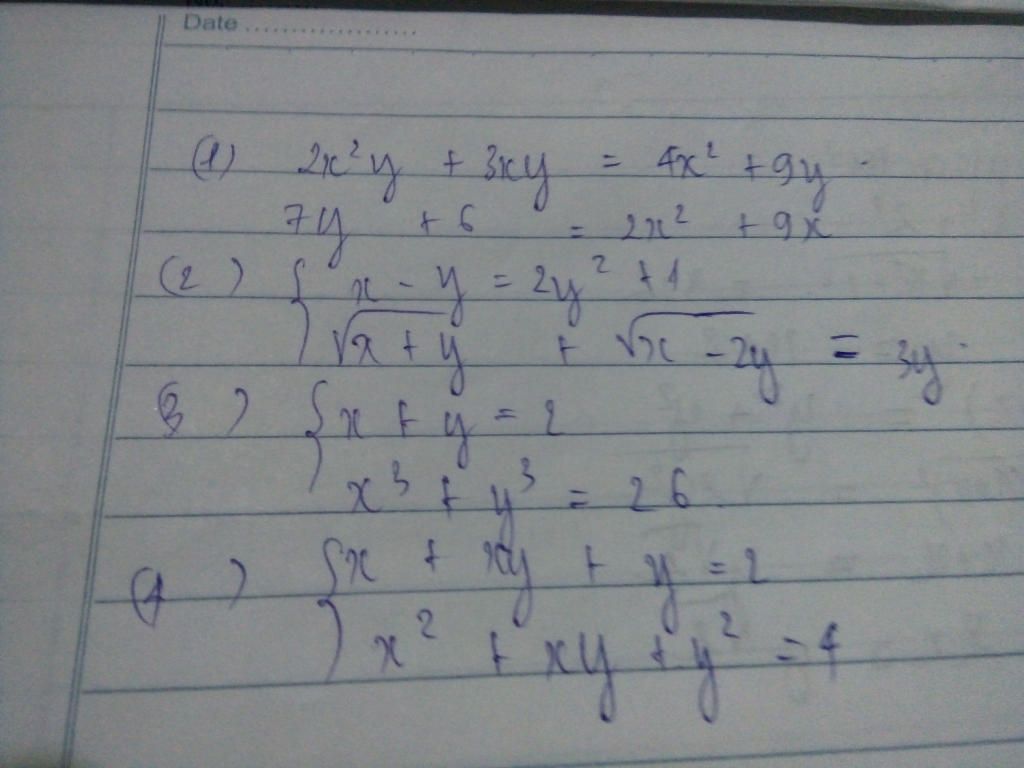 Date ..................
(1) 2x²y + 3xy = 4x² + 9y .
7y + 6 = 2x² + 9x
(2) { x - y = 2y² + 1
√x + y + √x - 2y = 3y .
3 ) { x + y = 2
x³ + y³ = 26
(4 ) { x + xy + y = 2
x² + xy + y² = 4